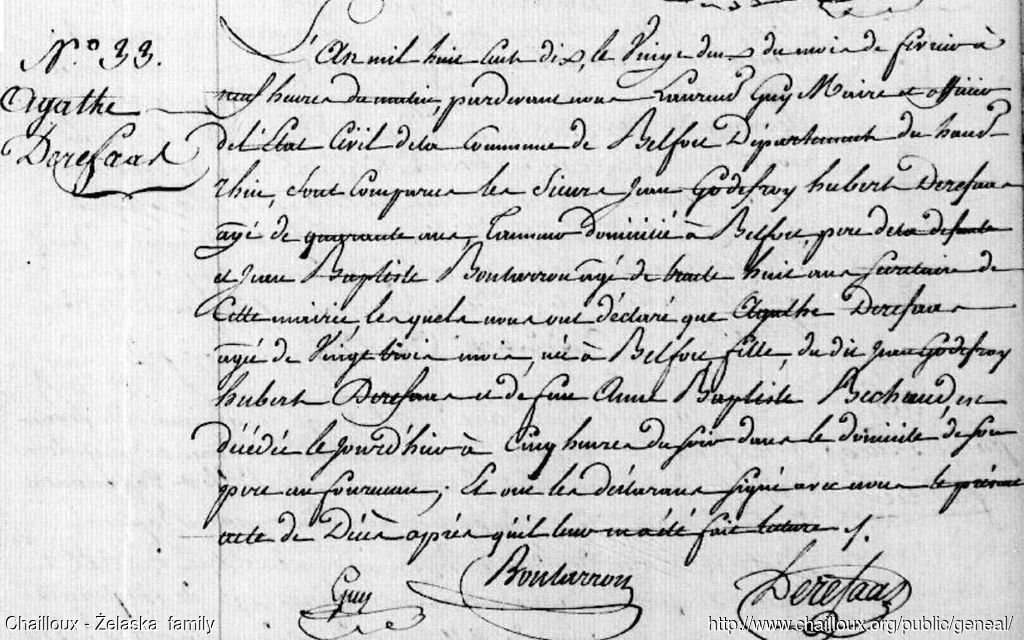 N.o 33.
Agathe
Derefaas
L'An mil huit cent dix, le Vingt deux du mois de fevrier à
neuf heures du matin, pardevant nous Laurend Guy Maire et officier
de l'Etat Civil de la Commune de Belfort Département du haut
rhin, sont Comparus les Sieurs Jean Godefroy hubert Derefaas
agé de quarante ans, Tanneur domicilié à Belfort, pere de la defunte
et Jean Baptiste Bontarron agé de trente huit ans Secretaire de
Cette mairie, lesquels nous ont déclaré que Agathe Derefaas
agée de Vingt trois mois, née à Belfort fille du dit Jean Godefroy
hubert Derefaas et de feue Anne Baptiste Bechaud, est
décédée le jourd'hier à Cinq heures du soir dans le domicile de son
pere au fourneau; Et ont les déclarans signé avec nous le présent
acte de Décès après qu'il leur en a été fait lecture ./.
Guy
Bontarron
Derefaas
Chailloux - Żelaska family
http://www.chailloux.org/public/geneal/